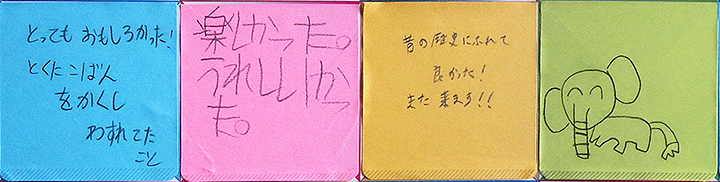 とっても おもしろかった!
とくにこばん
をかくし
わすれてた
こと
楽しかった。
うれししかっ
た。
昔の歴史にふれて
良かった!
また来まする!!